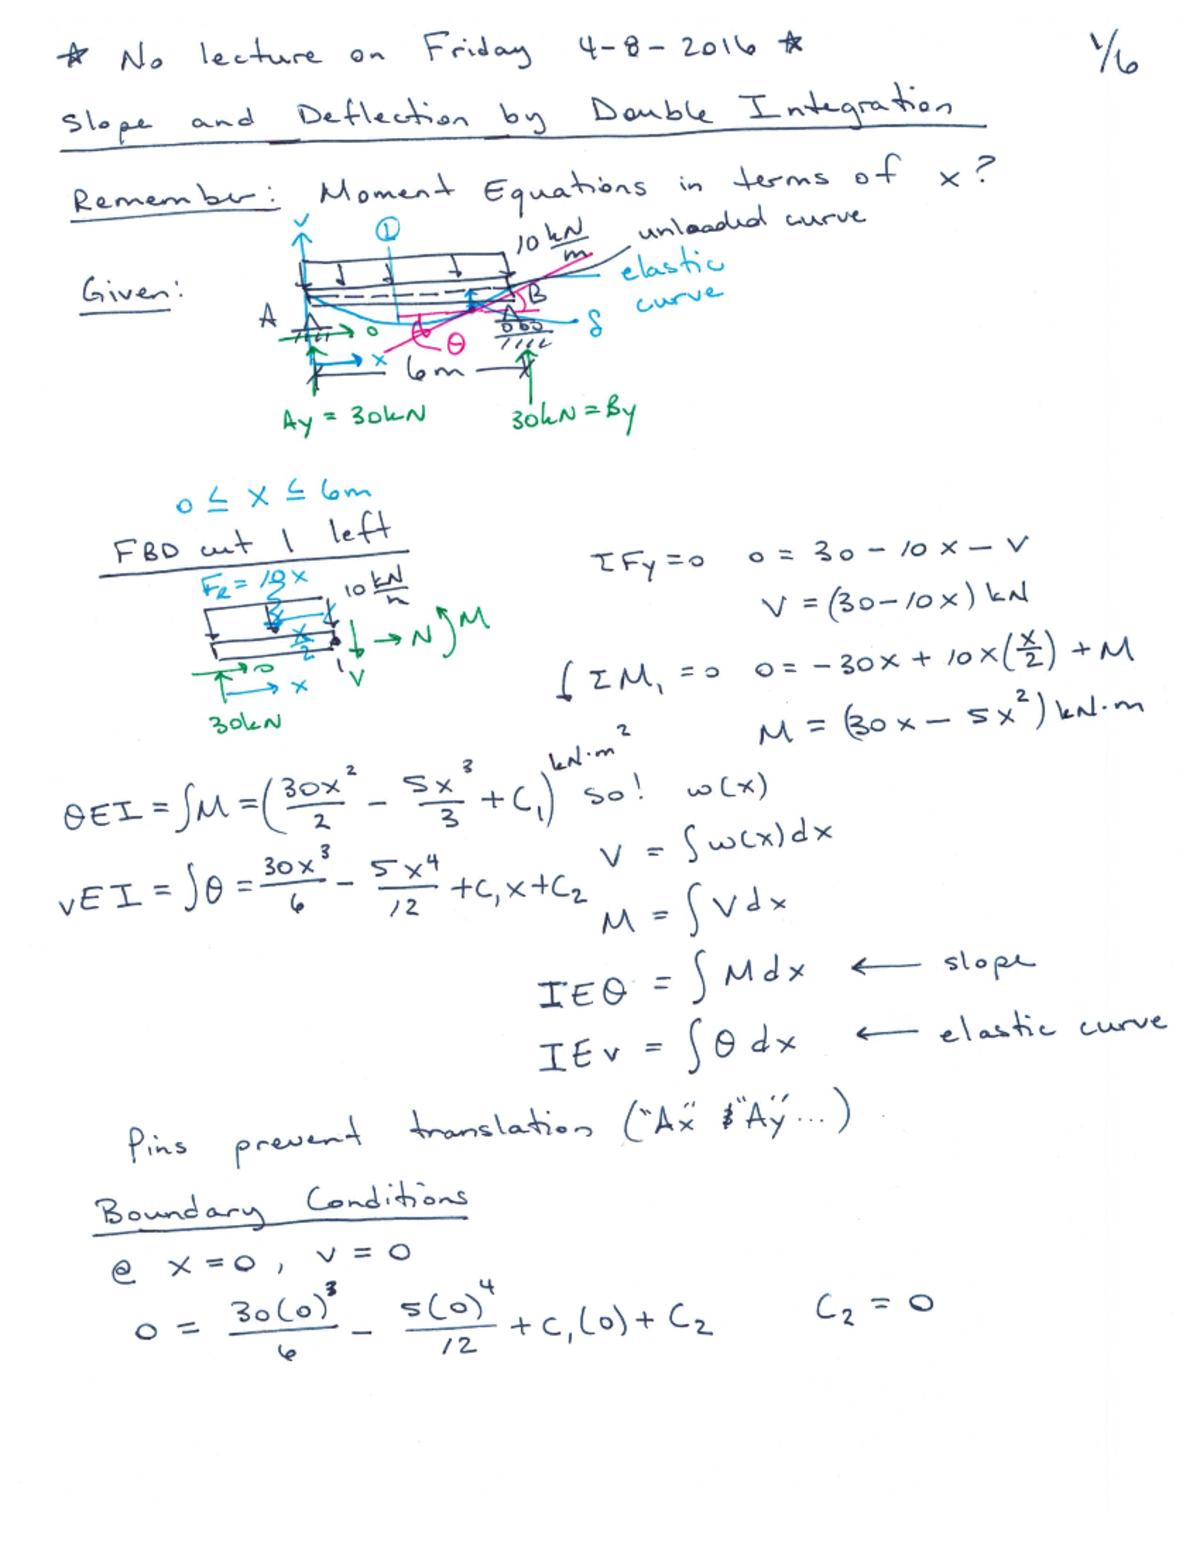 ☆ No lecture on Friday 4-8-2016 ☆
1/6
Slope and Deflection by Double Integration
Remember: Moment Equations in terms of x?
v
①
10 kN/m
unloaded curve
elastic curve
Given:
A
B
δ
0
θ
x
6m
Ay = 30kN
30kN = By
0 ≤ x ≤ 6m
FBD cut 1 left
FR = 10x
10 kN/m
x/2
N
M
0
x
1
V
30kN
ΣFy = 0 0 = 30 - 10x - V
V = (30-10x) kN
ΣM1 = 0 0 = -30x + 10x(x/2) + M
M = (30x - 5x²) kN·m
θEI = ∫M = (30x²/2 - 5x³/3 + C1) kN·m²
so! w(x)
V = ∫w(x)dx
vEI = ∫θ = 30x³/6 - 5x⁴/12 + C1x + C2
M = ∫Vdx
IEθ = ∫Mdx ← slope
IEv = ∫θdx ← elastic curve
Pins prevent translation ("Ax" & "Ay"...)
Boundary Conditions
@ x=0, v=0
0 = 30(0)³/6 - 5(0)⁴/12 + C1(0) + C2 C2 = 0